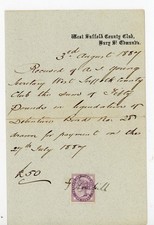 West Suffolk County Club,
Bury St. Edmunds.
3rd August 1887
Received of A S Young
Secretary West Suffolk County
Club the sum of Fifty
Pounds in liquidation of
Debenture Bonds No. 28
drawn for payment on the
29th July 1887
£50